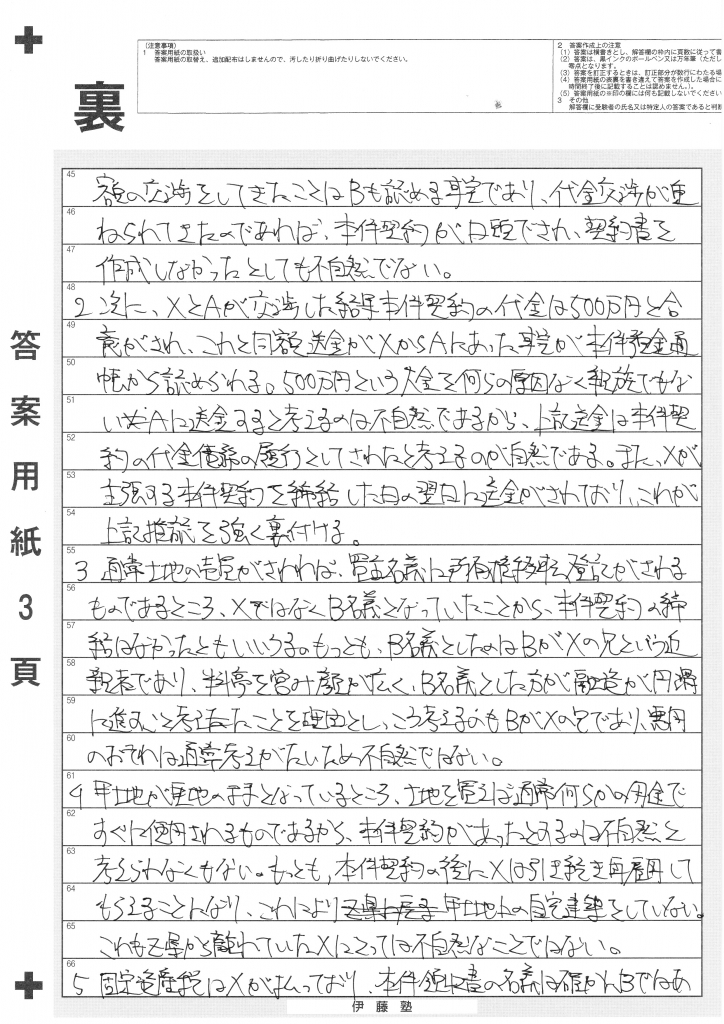 (注意事項)
1 答案用紙の取扱い
答案用紙の取替え、追加配布はしませんので、汚したり折り曲げたりしないでください。
2 答案作成上の注意
(1) 答案は横書きとし、解答欄の枠内に頁数に従って書
(2) 答案は、黒インクのボールペン又は万年筆(ただし
零点となります。
(3) 答案を訂正するときは、訂正部分が数行にわたる場
(4) 答案用紙の表裏を書き違えて答案を作成した場合に
時間終了後に記載することは認めません。)。
(5) 答案用紙の※印の欄には何も記載しないでください
3 その他
解答欄に受験者の氏名又は特定人の答案であると判断
裏
答案用紙3頁
45 額の交渉をしてきたことはBも認める事実であり、代金交渉が重
46 ねられてきたのであれば、本件契約が口頭でされ、契約書を
47 作成しなかったとしても不自然でない。
48 2 次に、XとAが交渉した結果本件契約の代金は500万円と合
49 意がされ、これと同額送金がXからAにあった事実が本件預金通
50 帳から認められる。500万円という大金を何らの原因なく親族でもな
51 いAに送金すると考えるのは不自然であるから、上記送金は本件契
52 約の代金債務の履行としてされたと考えるのが自然である。また、Xが
53 主張する本件契約を締結した日の翌日に送金がされており、これが
54 上記推認を強く裏付ける。
55 3 通常土地の売買がされれば、買主名義に所有権移転登記がされる
56 ものであるところ、XではなくB名義となっていたことから、本件契約の締
57 結はなかったともいいうる。もっとも、B名義としたのはBがXの兄という近
58 親者であり、料亭を営み顔が広く、B名義とした方が融資が円滑
59 に進むと考えたことを理由とし、こう考えるのもBがXの兄であり、悪用
60 のおそれは通常考えがたいため不自然ではない。
61 4 甲土地が更地のままとなっているところ、土地を買えば通常何らかの用途で
62 すぐに使用されるものであるから、本件契約があったとするのは不自然と
63 考えられなくもない。もっとも、本件契約の後にXは引き続き再雇用して
64 もらえることになり、これにより甲土地上の自宅建築をしていない。
65 これも乙県から離れていたXにとっては不自然なことではない。
66 5 固定資産税はXが払っており、本件領収書の名義は確かにBではあ
伊藤塾